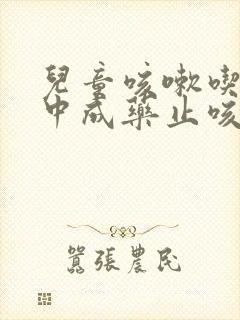 兒童咳嗽喫
中成藥止咳
囂張農民